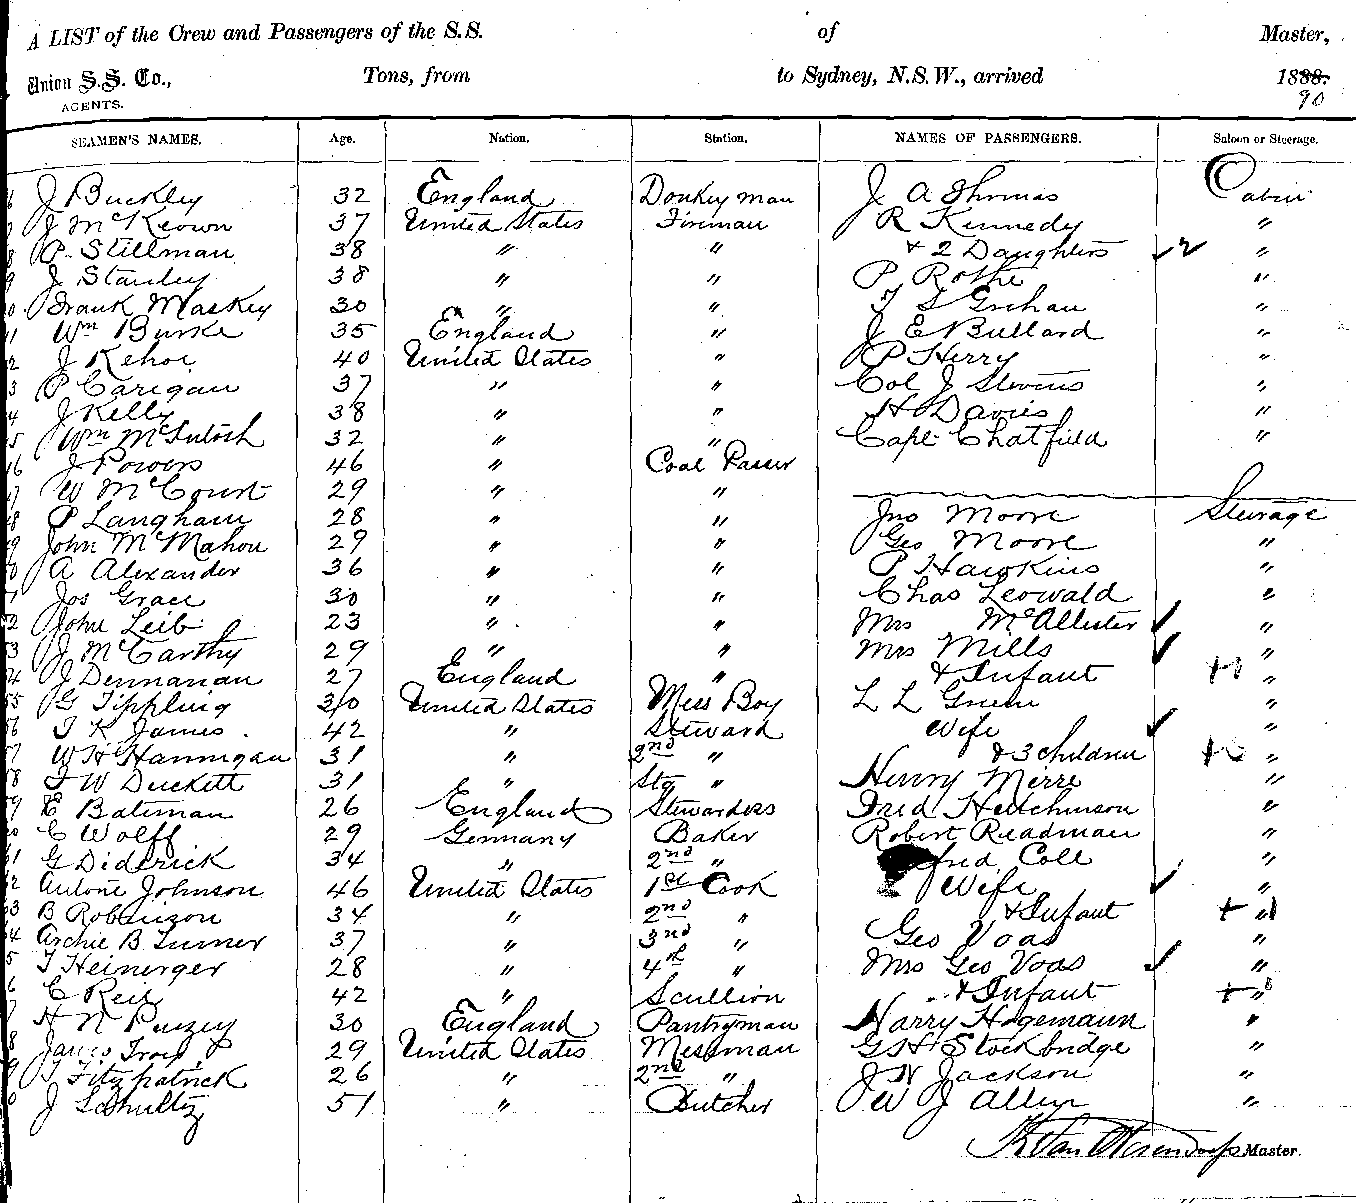 A LIST of the Crew and Passengers of the S.S. of Master,
Union S.S. Co., Tons, from to Sydney, N.S.W., arrived 1888.
AGENTS. 90
SEAMEN'S NAMES. Age. Nation. Station. NAMES OF PASSENGERS. Saloon or Steerage.
J Buckley 32 England Donkeyman J A Thomas Cabin
J McKeown 37 United States Fireman R Kennedy "
P. Stillman 38 " " & 2 Daughters ✓2 "
J Stanley 38 " " P Rothe "
Frank Maskey 30 " " T S "
Wm Burke 35 England " J E Bullard "
J Kehoe 40 United States " P Herry "
P Carigan 37 " " Col J Stevens "
J Kelly 38 " " H Davies "
Wm McIntosh 32 " " Capt Chatfield "
J Powers 46 " Coal Passer
W McCourt 29 " "
P Langham 28 " " Jno Moore Steerage
John McMahon 29 " " Geo Moore "
A Alexander 36 " " P Hawkins "
Jos Grace 30 " " Chas Leowald "
John Leib 23 " " Mrs McAllester ✓ "
J McCarthy 29 " " Mrs Mills ✓ "
J Dennanan 27 England " & Infant "
G Tippling 30 United States Mess Boy L L Green "
T K James 42 " Steward Wife ✓ "
W H Hannigan 31 " 2nd " & 3 children "
F W Duckett 31 " Stg " Henry Merre "
E Bateman 26 England Stewardess Fred Hutchinson "
C Wolff 29 Germany Baker Robert Readman "
G Diderick 34 " 2nd " Coll "
Antone Johnson 46 United States 1st Cook Wife ✓ "
B Robinzon 34 " 2nd " & Infant "
Archie B Turner 37 " 3rd " Geo Voas "
T Heinerger 28 " 4th " Mrs Geo Voas ✓ "
C Reil 42 " Scullion & Infant "
H N 30 England Pantryman Harry Hagemann "
James Troy 29 United States Messman G H Stockbridge "
T Fitzpatrick 26 " 2nd " J N Jackson "
J Schultz 51 " Butcher W J Allen "
Master.